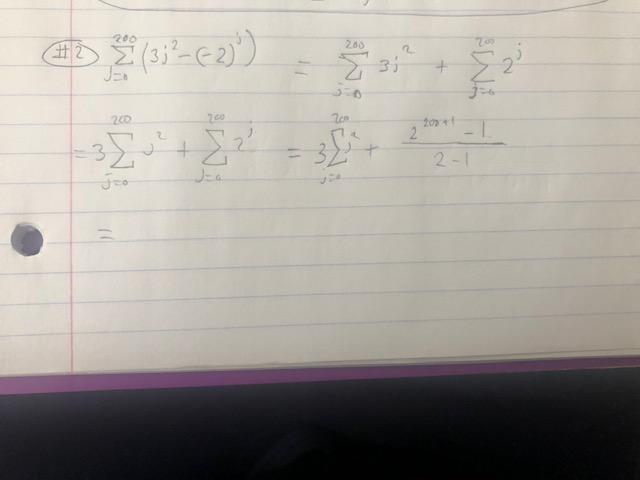 #2 \sum_{j=0}^{200} (3j^2 - (-2)^j) = \sum_{j=0}^{200} 3j^2 + \sum_{j=0}^{200} 2^j
= 3 \sum_{j=0}^{200} j^2 + \sum_{j=0}^{200} 2^j = 3 \sum_{j=0}^{200} j^2 + \frac{2^{200+1} - 1}{2 - 1}
=